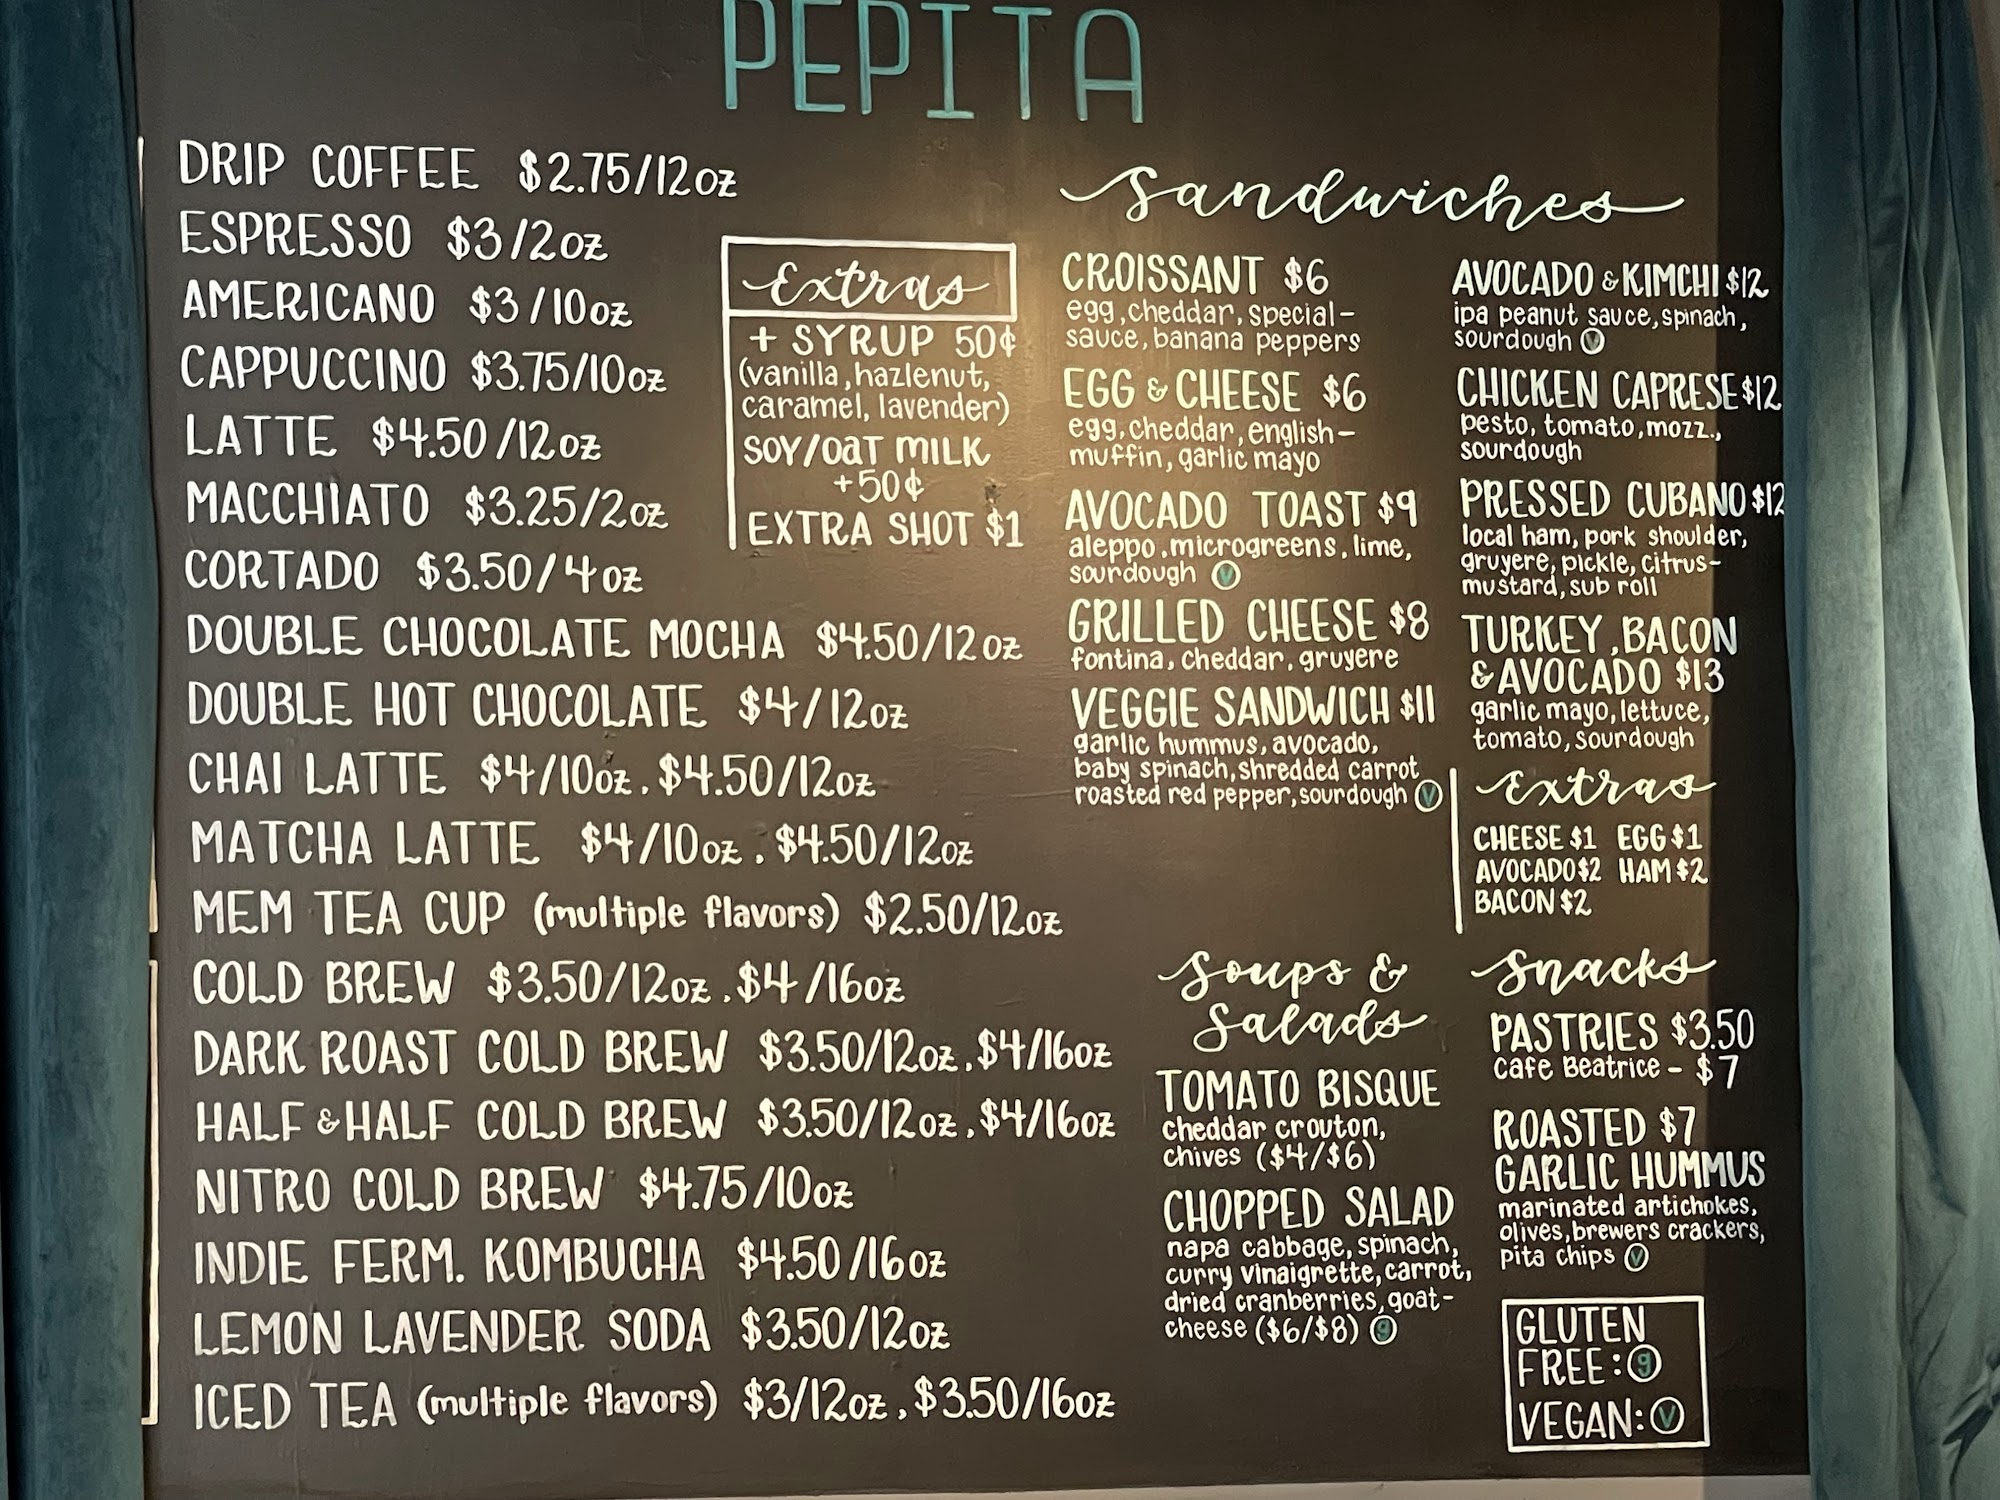 PEPITA
DRIP COFFEE $2.75/12oz
ESPRESSO $3/2oz
AMERICANO $3/10oz
CAPPUCCINO $3.75/10oz
LATTE $4.50/12oz
MACCHIATO $3.25/2oz
CORTADO $3.50/4oz
DOUBLE CHOCOLATE MOCHA $4.50/12oz
DOUBLE HOT CHOCOLATE $4/12oz
CHAI LATTE $4/10oz. $4.50/12oz
MATCHA LATTE $4/10oz. $4.50/12oz
MEM TEA CUP (multiple flavors) $2.50/12oz
COLD BREW $3.50/12oz. $4/16oz
DARK ROAST COLD BREW $3.50/12oz. $4/16oz
HALF & HALF COLD BREW $3.50/12oz. $4/16oz
NITRO COLD BREW $4.75/10oz
INDIE FERM. KOMBUCHA $4.50/16oz
LEMON LAVENDER SODA $3.50/12oz
ICED TEA (multiple flavors) $3/12oz, $3.50/16oz
Extras
+ SYRUP 50¢
(vanilla, hazlenut,
caramel, lavender)
SOY/OaT MILK
+50¢
EXTRA SHOT $1
Sandwiches
CROISSANT $6
egg, cheddar, special-
sauce, banana peppers
EGG & CHEESE $6
egg, cheddar, english-
muffin, garlic mayo
AVOCADO TOAST $9
aleppo. microgreens, lime,
sourdough V
GRILLED CHEESE $8
fontina, cheddar, gruyere
VEGGIE SANDWICH $11
garlic hummus, avocado,
baby spinach, shredded carrot
roasted red pepper, sourdough V
AVOCADO & KIMCHI $12
ipa peanut sauce, spinach,
sourdough V
CHICKEN CAPRESE $12
pesto, tomato, mozz.,
sourdough
PRESSED CUBANO $12
local ham, pork shoulder,
gruyere, pickle, citrus-
mustard, sub roll
TURKEY, BACON
& AVOCADO $13
garlic mayo, lettuce,
tomato, sourdough
Extras
CHEESE $1 EGG $1
AVOCADO $2 HAM $2
BACON $2
Soups &
Salads
TOMATO BISQUE
cheddar crouton,
chives ($4/$6)
CHOPPED SALAD
napa cabbage, spinach,
curry vinaigrette, carrot,
dried cranberries, goat-
cheese ($6/$8) g
Snacks
PASTRIES $3.50
Cafe Beatrice - $7
ROASTED $7
GARLIC HUMMUS
marinated artichokes,
olives, brewers crackers,
pita chips V
GLUTEN
FREE: g
VEGAN: V